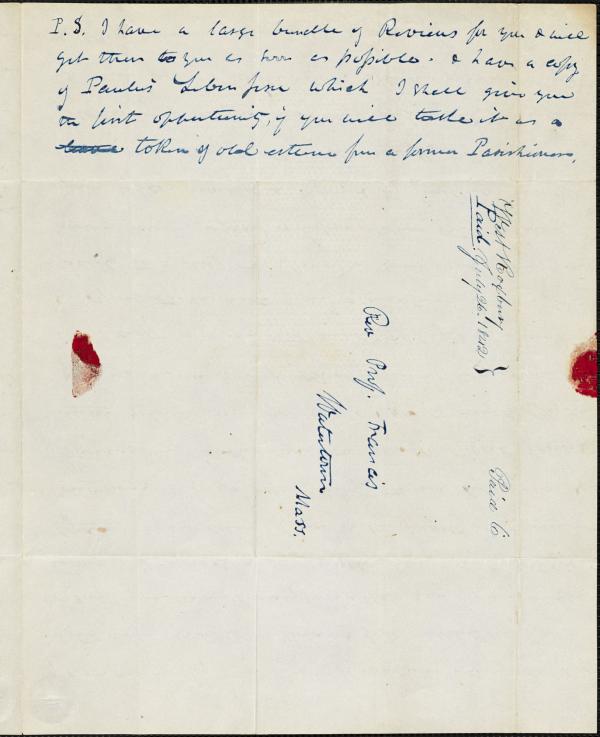 P.S. I have a large bundle of Reviews for you & will
get them to you as soon as possible. I have a copy
of Paulus' Leben Jesu which I shall give you
on first opportunity, if you will take it as a
token of old esteem from a former Parishioner.
West Roxbury
Paid. July 26. 1842
Paid 6
Rev Prof. Francis
Watertown
Mass.